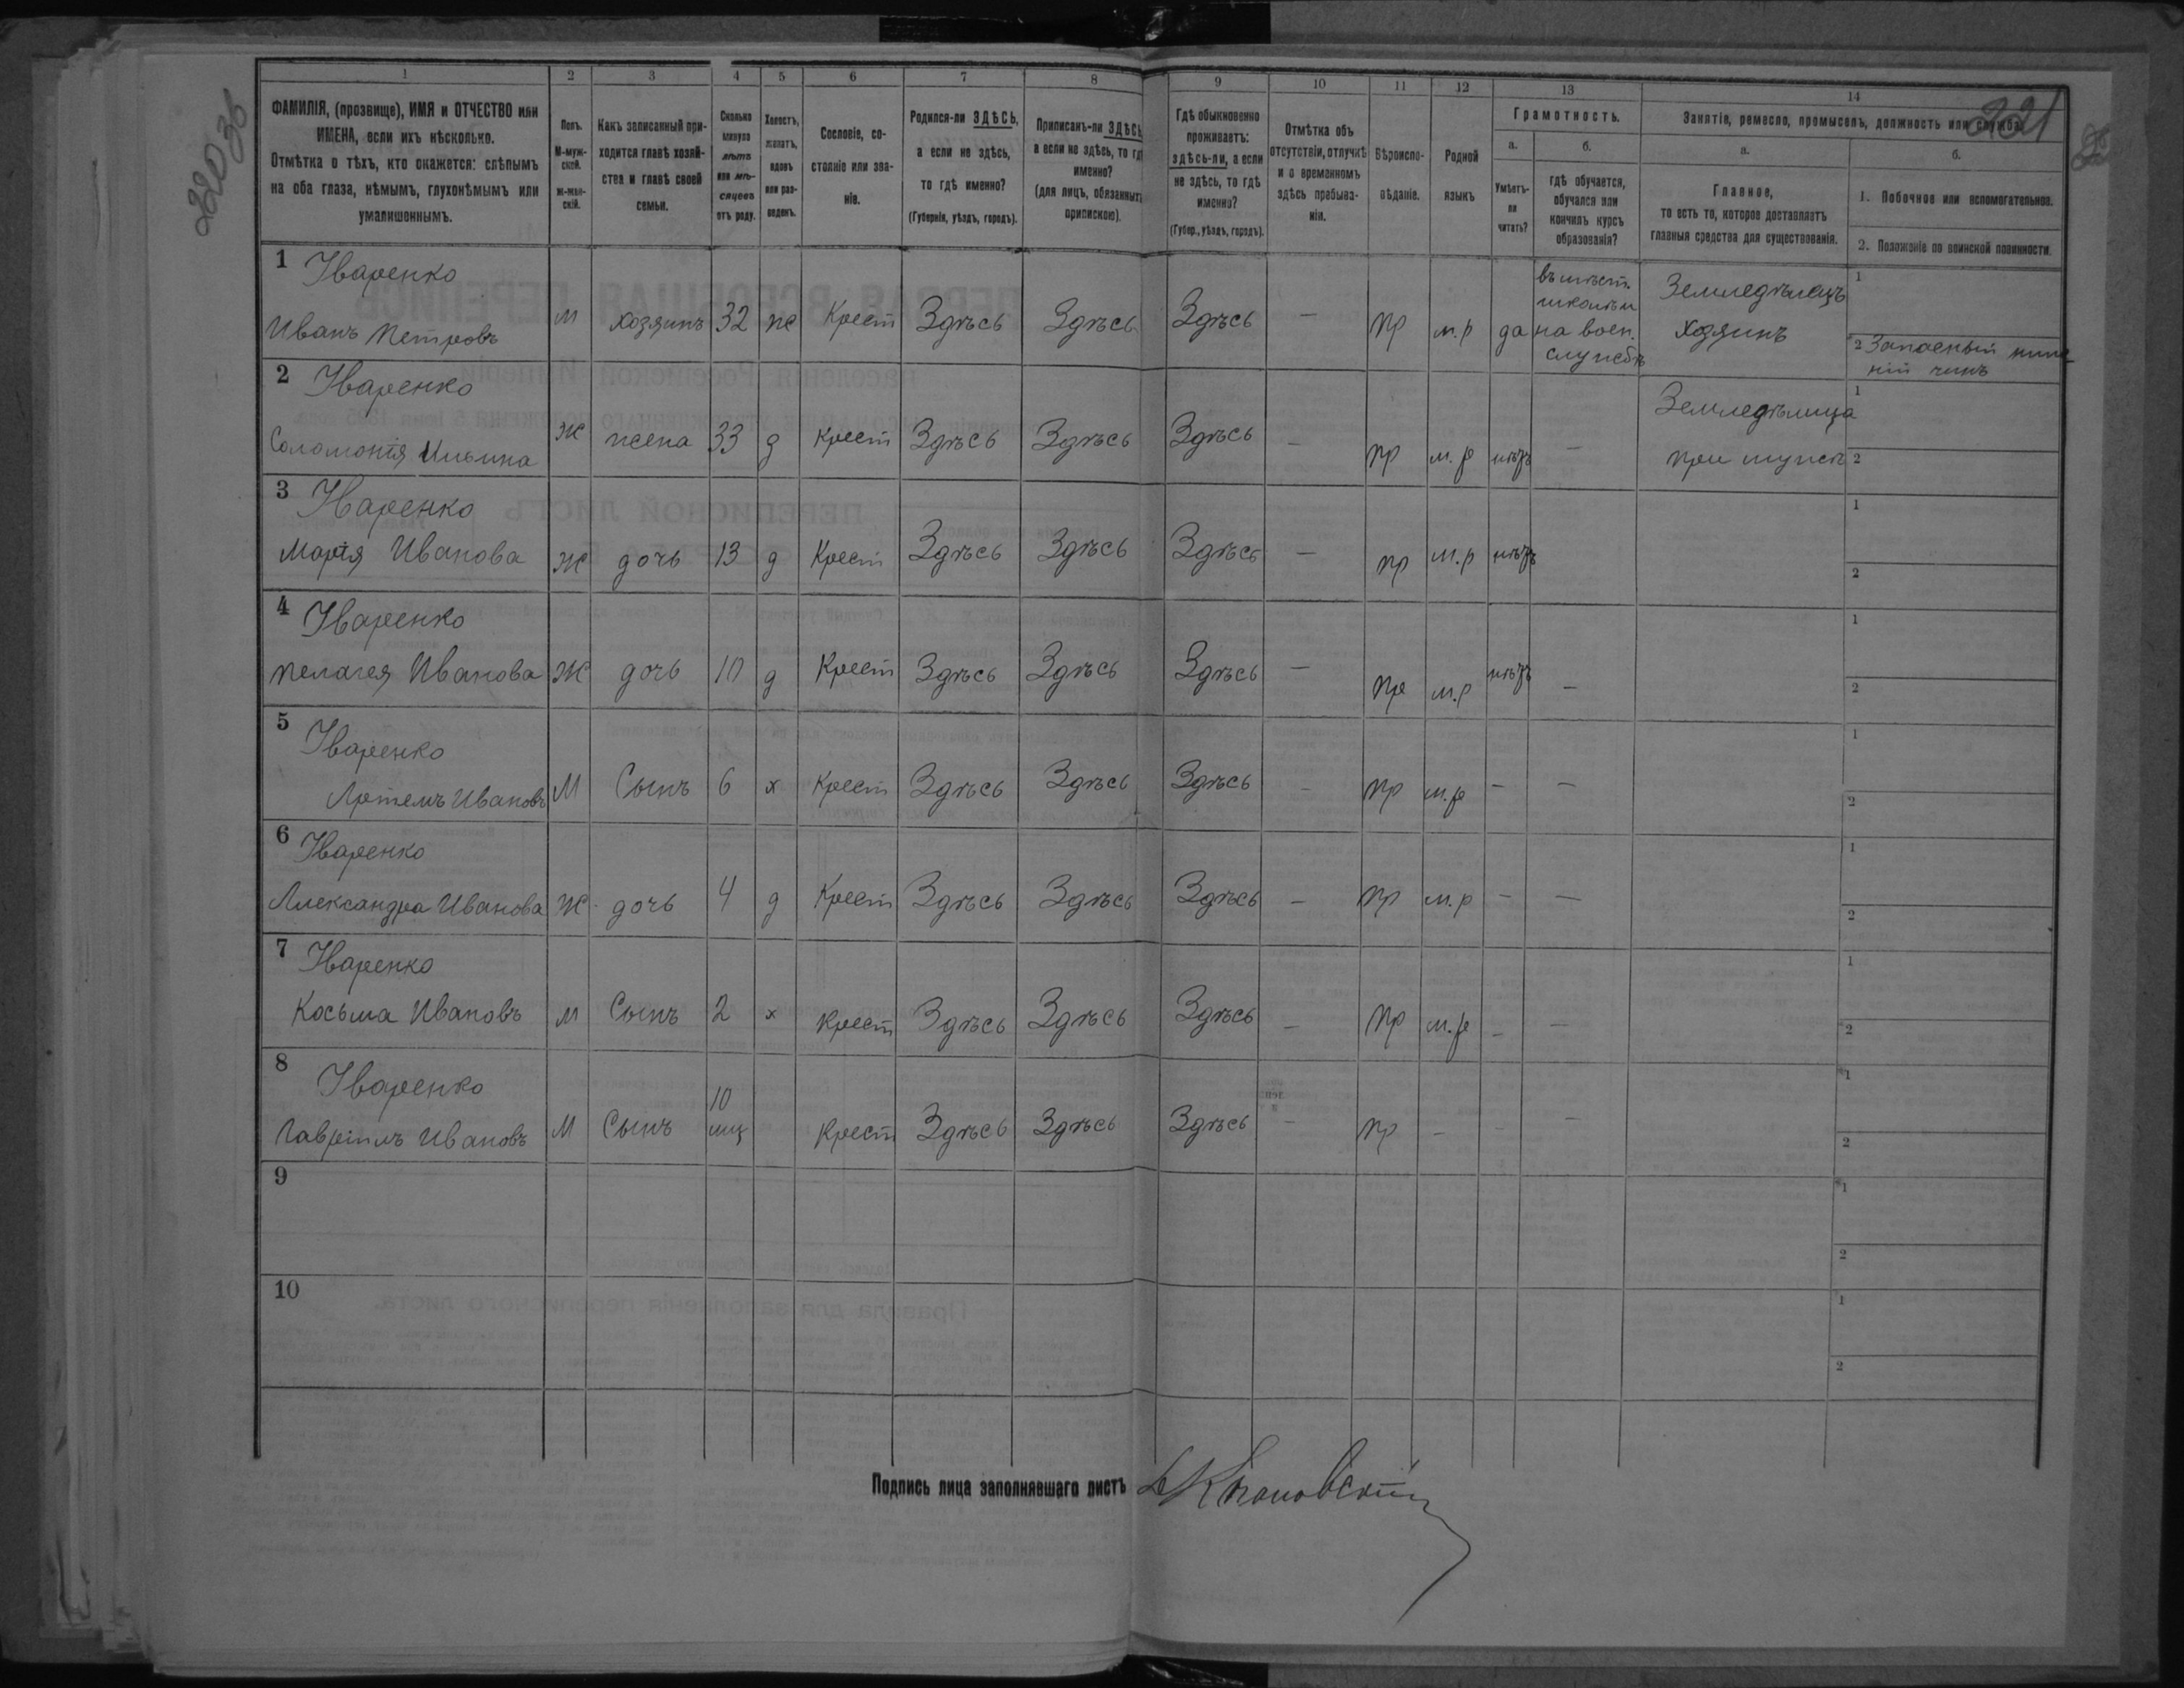 220 об
1 2 3 4 5 6 7 8 9 10 11 12 13 14
221
ФАМИЛІЯ, (прозвище), ИМЯ и ОТЧЕСТВО или ИМЕНА, если ихъ нѣсколько.
Отмѣтка о тѣхъ, кто окажется: слѣпымъ на оба глаза, нѣмымъ, глухонѣмымъ или умалишоннымъ.
Полъ. М-мужской. Ж-женскій.
Какъ записанный приходится главѣ хозяйства и главѣ своей семьи.
Сколько минуло лѣтъ или мѣсяцевъ отъ роду.
Холостъ, женатъ, вдовъ или разведенъ.
Сословіе, состояніе или званіе.
Родился-ли ЗДѢСЬ, а если не здѣсь, то гдѣ именно? (Губернія, уѣздъ, городъ).
Приписанъ-ли ЗДѢСЬ а если не здѣсь, то гдѣ именно? (для лицъ, обязанныхъ припискою).
Гдѣ обыкновенно проживаетъ: здѣсь-ли, а если не здѣсь, то гдѣ именно? (Губер., уѣздъ, городъ).
Отмѣтка объ отсутствіи, отлучкѣ и о временномъ здѣсь пребываніи.
Вѣроисповѣданіе.
Родной языкъ
Грамотность.
а. Умѣетъ-ли читать?
б. гдѣ обучается, обучался или кончилъ курсъ образованія?
Занятіе, ремесло, промыселъ, должность или служба.
а. Главное, то есть то, которое доставляетъ главныя средства для существованія.
б. 1. Побочное или вспомогательное.
2. Положеніе по воинской повинности.
1 Іваренко
Иванъ Петровъ м хозяинъ 32 ж Крест Здѣсь Здѣсь Здѣсь — пр м.р да
на воен. службѣ
Земледѣлецъ хозяинъ
1
2 Запасный нижній чинъ
2 Іваренко
Соломонія Ильина ж жена 33 з Крест Здѣсь Здѣсь Здѣсь — пр м.р нѣтъ —
Земледѣлица при мужѣ
1
2
3 Іваренко
Марія Иванова ж дочь 13 д Крест Здѣсь Здѣсь Здѣсь — пр м.р нѣтъ
1
2
4 Іваренко
Пелагея Иванова ж дочь 10 д Крест Здѣсь Здѣсь Здѣсь — пр м.р нѣтъ —
1
2
5 Іваренко
Артемъ Ивановъ М Сынъ 6 х Крест Здѣсь Здѣсь Здѣсь — пр м.р — —
1
2
6 Іваренко
Александра Иванова ж дочь 4 д Крест Здѣсь Здѣсь Здѣсь — пр м.р — —
1
2
7 Іваренко
Косьма Ивановъ м Сынъ 2 х Крест Здѣсь Здѣсь Здѣсь — пр м.р — —
1
2
8 Іваренко
Гавріилъ Ивановъ М Сынъ 10 мц Крест Здѣсь Здѣсь Здѣсь — пр — — —
1
2
9
1
2
10
1
2
Подпись лица заполнявшаго листъ